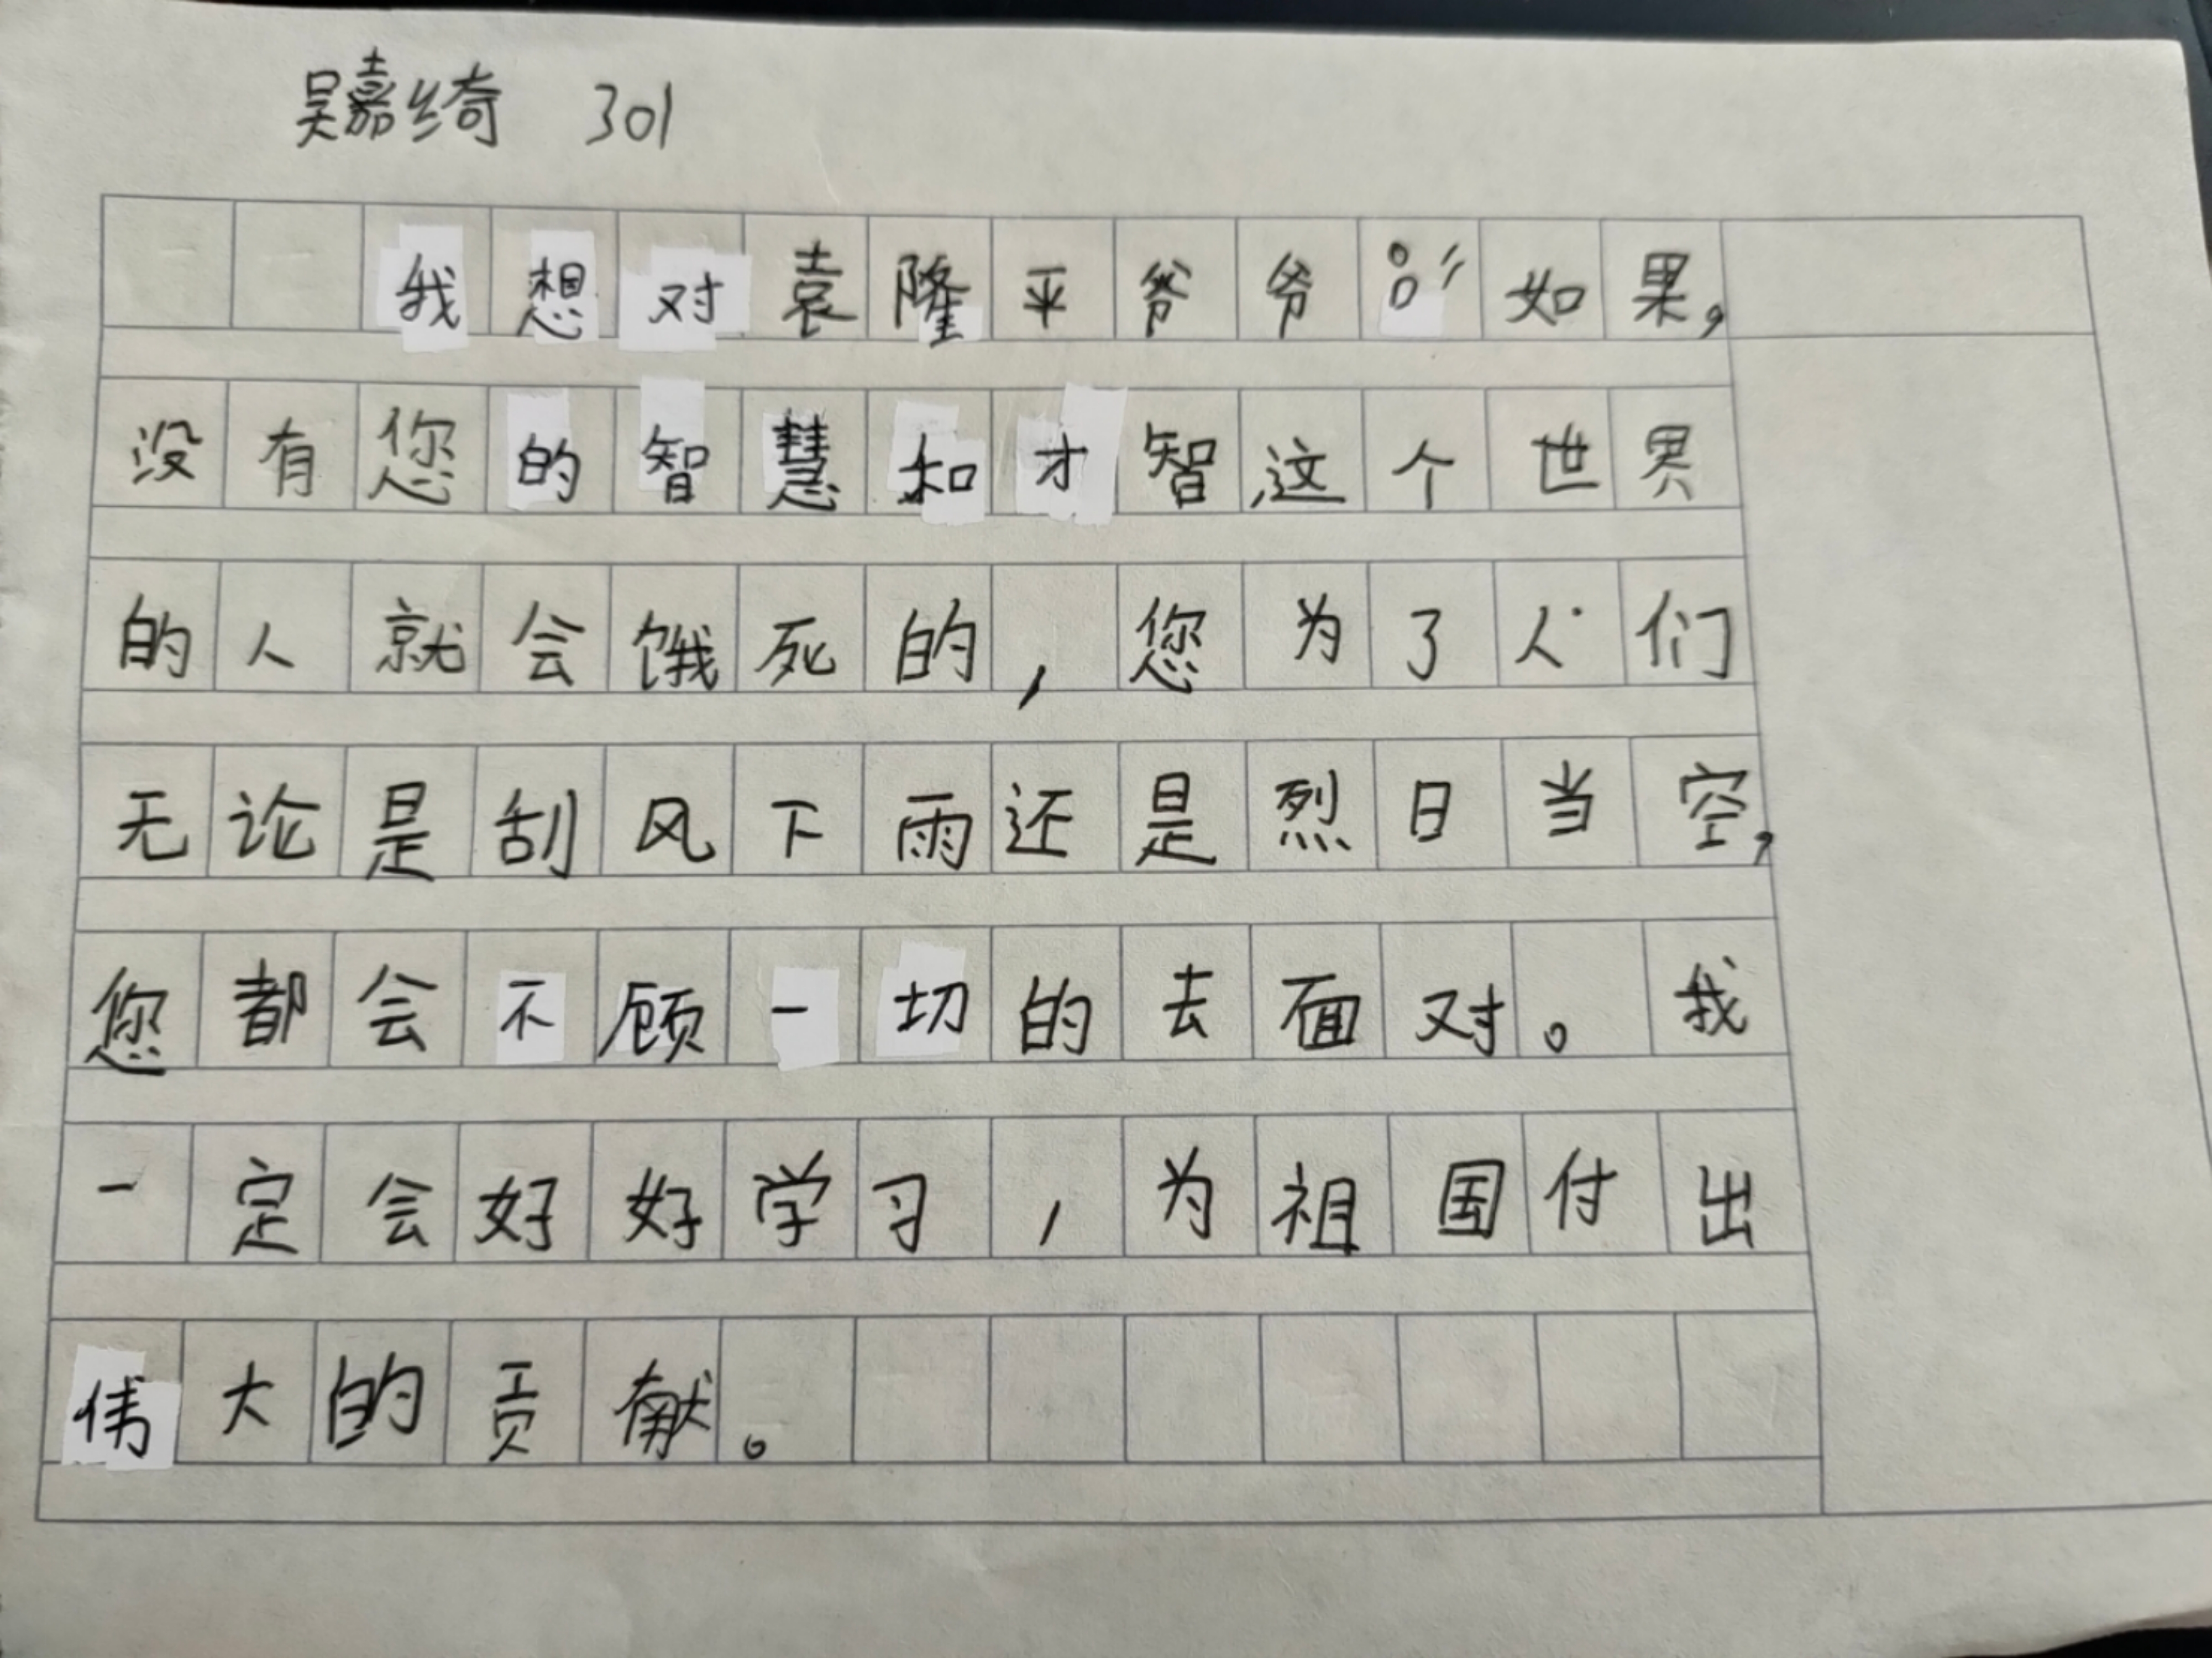 吴嘉绮 301
我想对袁隆平爷爷:“如果,
没有您的智慧和才智这个世界
的人就会饿死的,您为了人们
无论是刮风下雨还是烈日当空,
您都会不顾一切的去面对。我
一定会好好学习,为祖国付出
伟大的贡献。